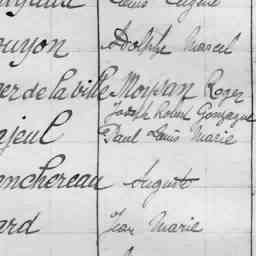 Louis Eugène
ouyon Adolphe Marcel
er de la ville Morvan Roger
Joseph Robert Gonzague
ajeul Paul Louis Marie
nchereau Auguste
ard Jean Marie